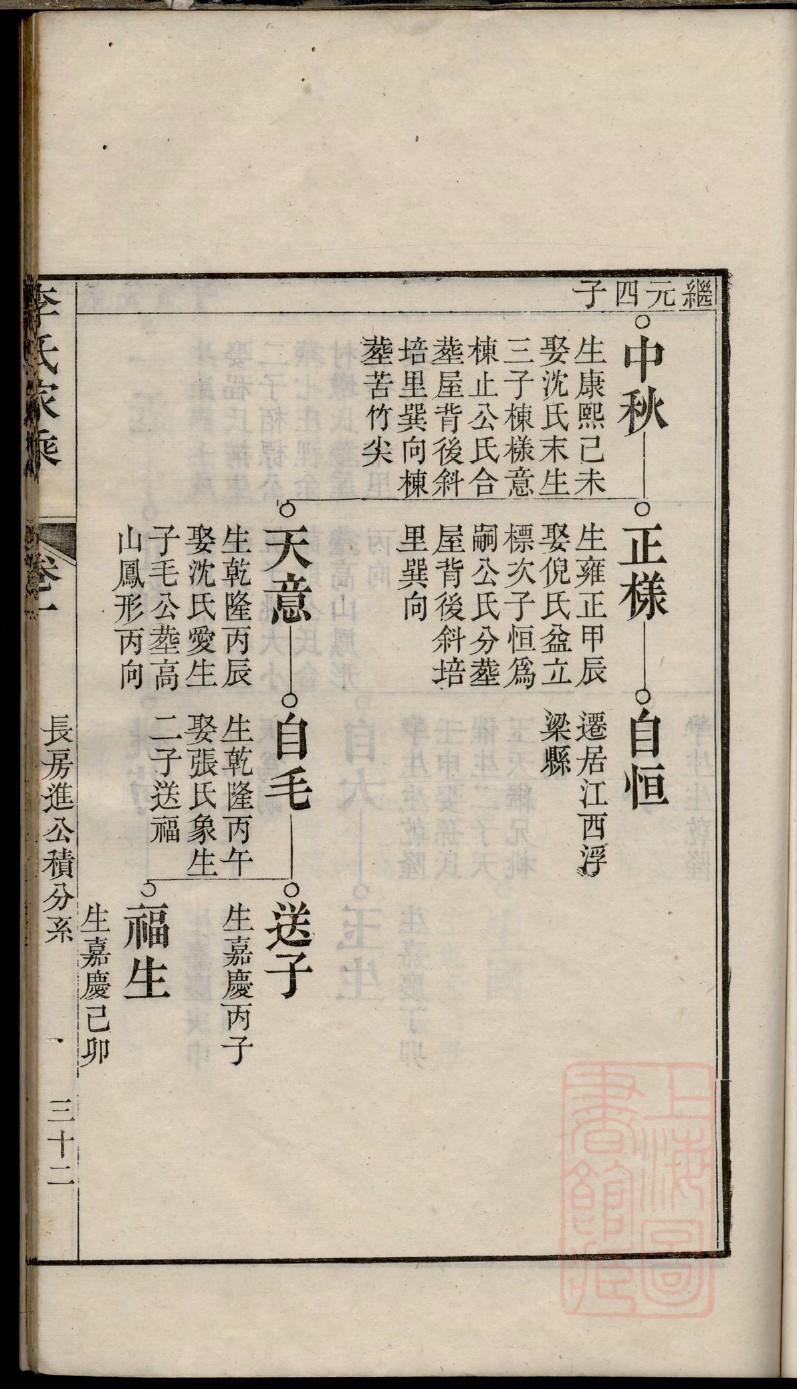 繼元四子
中秋
生康熙己未
娶沈氏末生
三子棟樣意
棟止公氏合
塟屋背後斜
培里巽向棟
塟苦竹尖
正樣
生雍正甲辰
娶倪氏益立
標次子恒爲
嗣公氏分塟
屋背後斜培
里巽向
自恒
遷居江西浮
梁縣
天意
生乾隆丙辰
娶沈氏愛生
子毛公塟高
山鳳形丙向
自毛
生乾隆丙午
娶張氏象生
二子送福
送子
生嘉慶丙子
福生
生嘉慶己卯
李氏家乘
卷一
長房進公積分系
三十二
上海圖書館藏